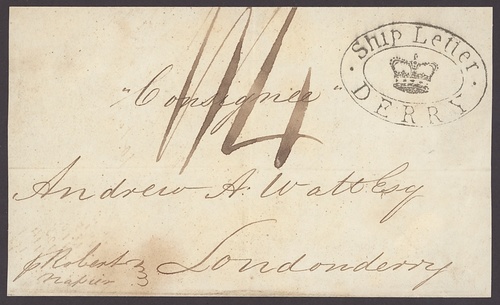 Ship Letter
DERRY
1/4
"Consignee"
Andrew A. Watt Esq
Londonderry
p Robert
Napier